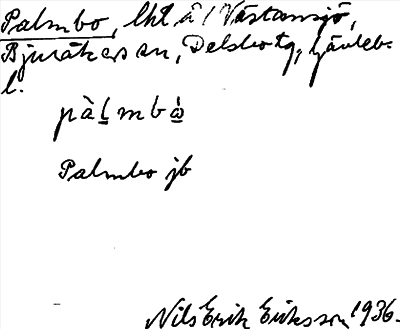 Palmbo, lht å 1 Västansjö,
Bjuråkers sn, Delsbo tg, Gävleb.
l.
pàl̲mbὼ̲
Palmbo jb
Nils Erik Eriksson 1936.